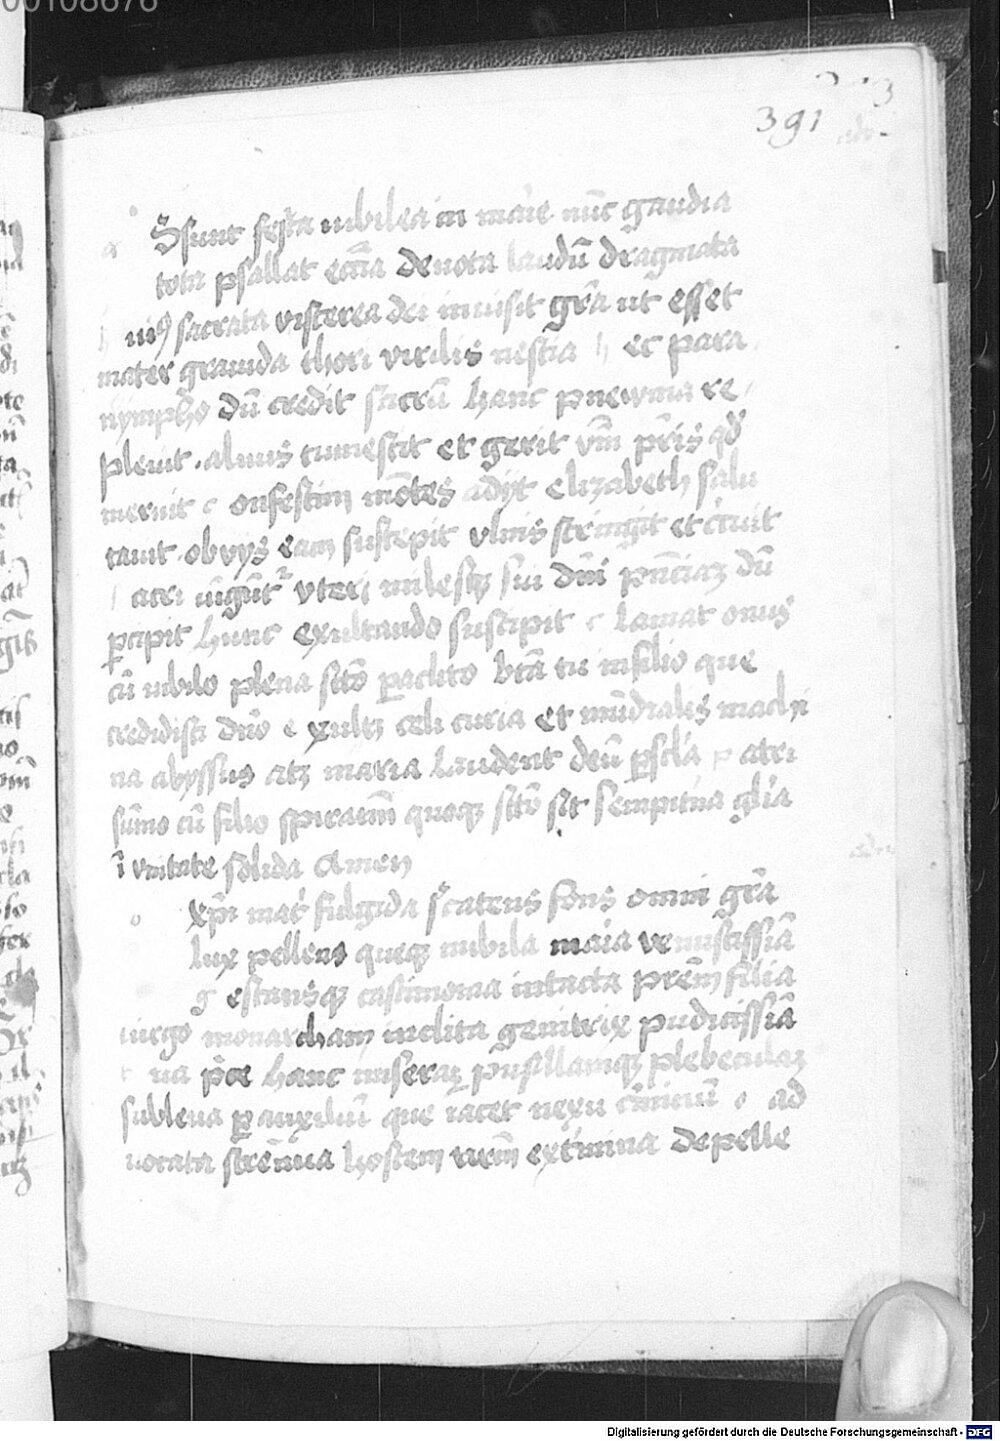 00108676
391
Assunt festa iubilea in maie nūc gaudia
tota psallat eccīia deuota laudū dragmata
uiꝰ sacrata viscerea dei inuisit grā ut esset
mater grauida thori virilis nescia h ec para
nympho dū credit sacrū hanc pnewma re
pleuit . aluus tumescit et gerit vm̄ pr̄is qd
meruit c onfestim mōtes adijt elizabeth salu
tauit . obvijs eam suscepit vlnis stringit et
uteri milesqꝫ sui dnī pn̄ciaꝫ dū
ꝑcipit hunc exultando suscipit c lamat onus
cū iubilo plena sc̄to ꝑaclito btā tu in filio que
credidisti dn̄o e xultꝫ celi curia et mūdialis machi
na abyssus atqꝫ maria laudent deū p atri
sūmo cū filio spiramī quoqꝫ sc̄to sit sempit̄na gl̄ia
ī vnitate solida Amen
o xp̄i mat̄ fulgida scaturiēs fons omni grā
lux pellens queqꝫ nubila maia venustissīa
g estansqꝫ castimonia intacta prēm filia
uirgo monarcham inclita genitrix pudicissīa
t ua p̄ce hanc miseraꝫ pusillamqꝫ plebeculaꝫ
subleua ꝑ auxiliū que iacet nexu cīminū o ad
uocata strēnua hostem nr̄m ext̄mina depelle
Digitalisierung gefördert durch die Deutsche Forschungsgemeinschaft - DFG